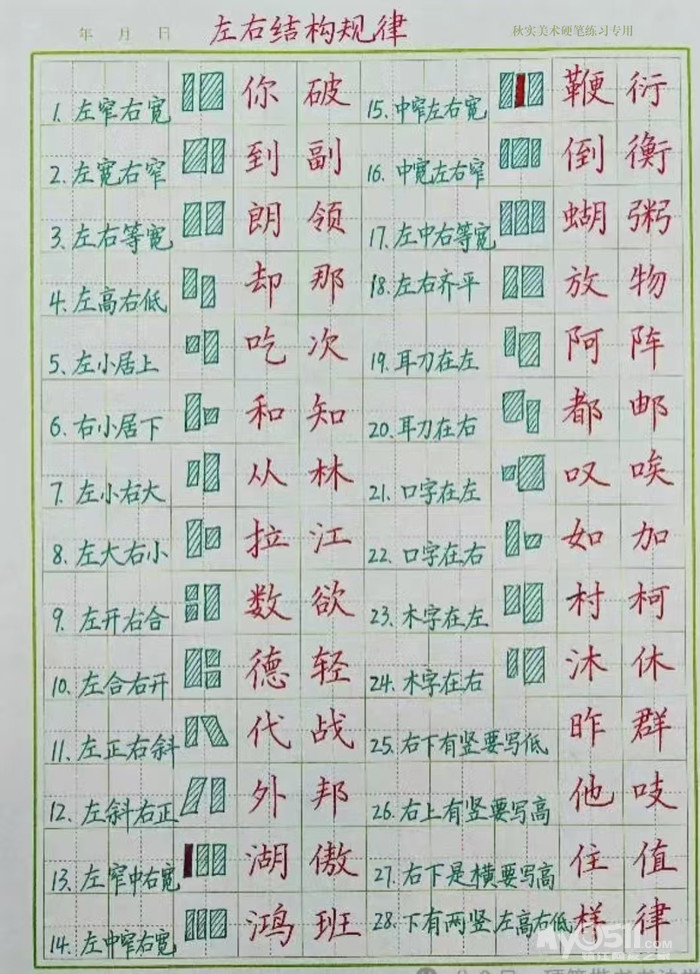 年 月 日 左右结构规律 秋实美术硬笔练习专用
1. 左窄右宽 你 破
2. 左宽右窄 到 副
3. 左右等宽 朗 领
4. 左高右低 却 那
5. 左小居上 吃 次
6. 右小居下 和 知
7. 左小右大 从 林
8. 左大右小 拉 江
9. 左开右合 数 欲
10. 左合右开 德 轻
11. 左正右斜 代 战
12. 左斜右正 外 邦
13. 左窄中右宽 湖 傲
14. 左中窄右宽 鸿 班
15. 中窄左右宽 鞭 衍
16. 中宽左右窄 倒 衡
17. 左中右等宽 蝴 粥
18. 左右齐平 放 物
19. 耳刀在左 阿 阵
20. 耳刀在右 都 邮
21. 口字在左 叹 唉
22. 口字在右 如 加
23. 木字在左 村 柯
24. 木字在右 沐 休
25. 右下有竖要写低 昨 群
26. 右上有竖要写高 他 吱
27. 右下是横要写高 住 值
28. 下有两竖左高右低 样 律